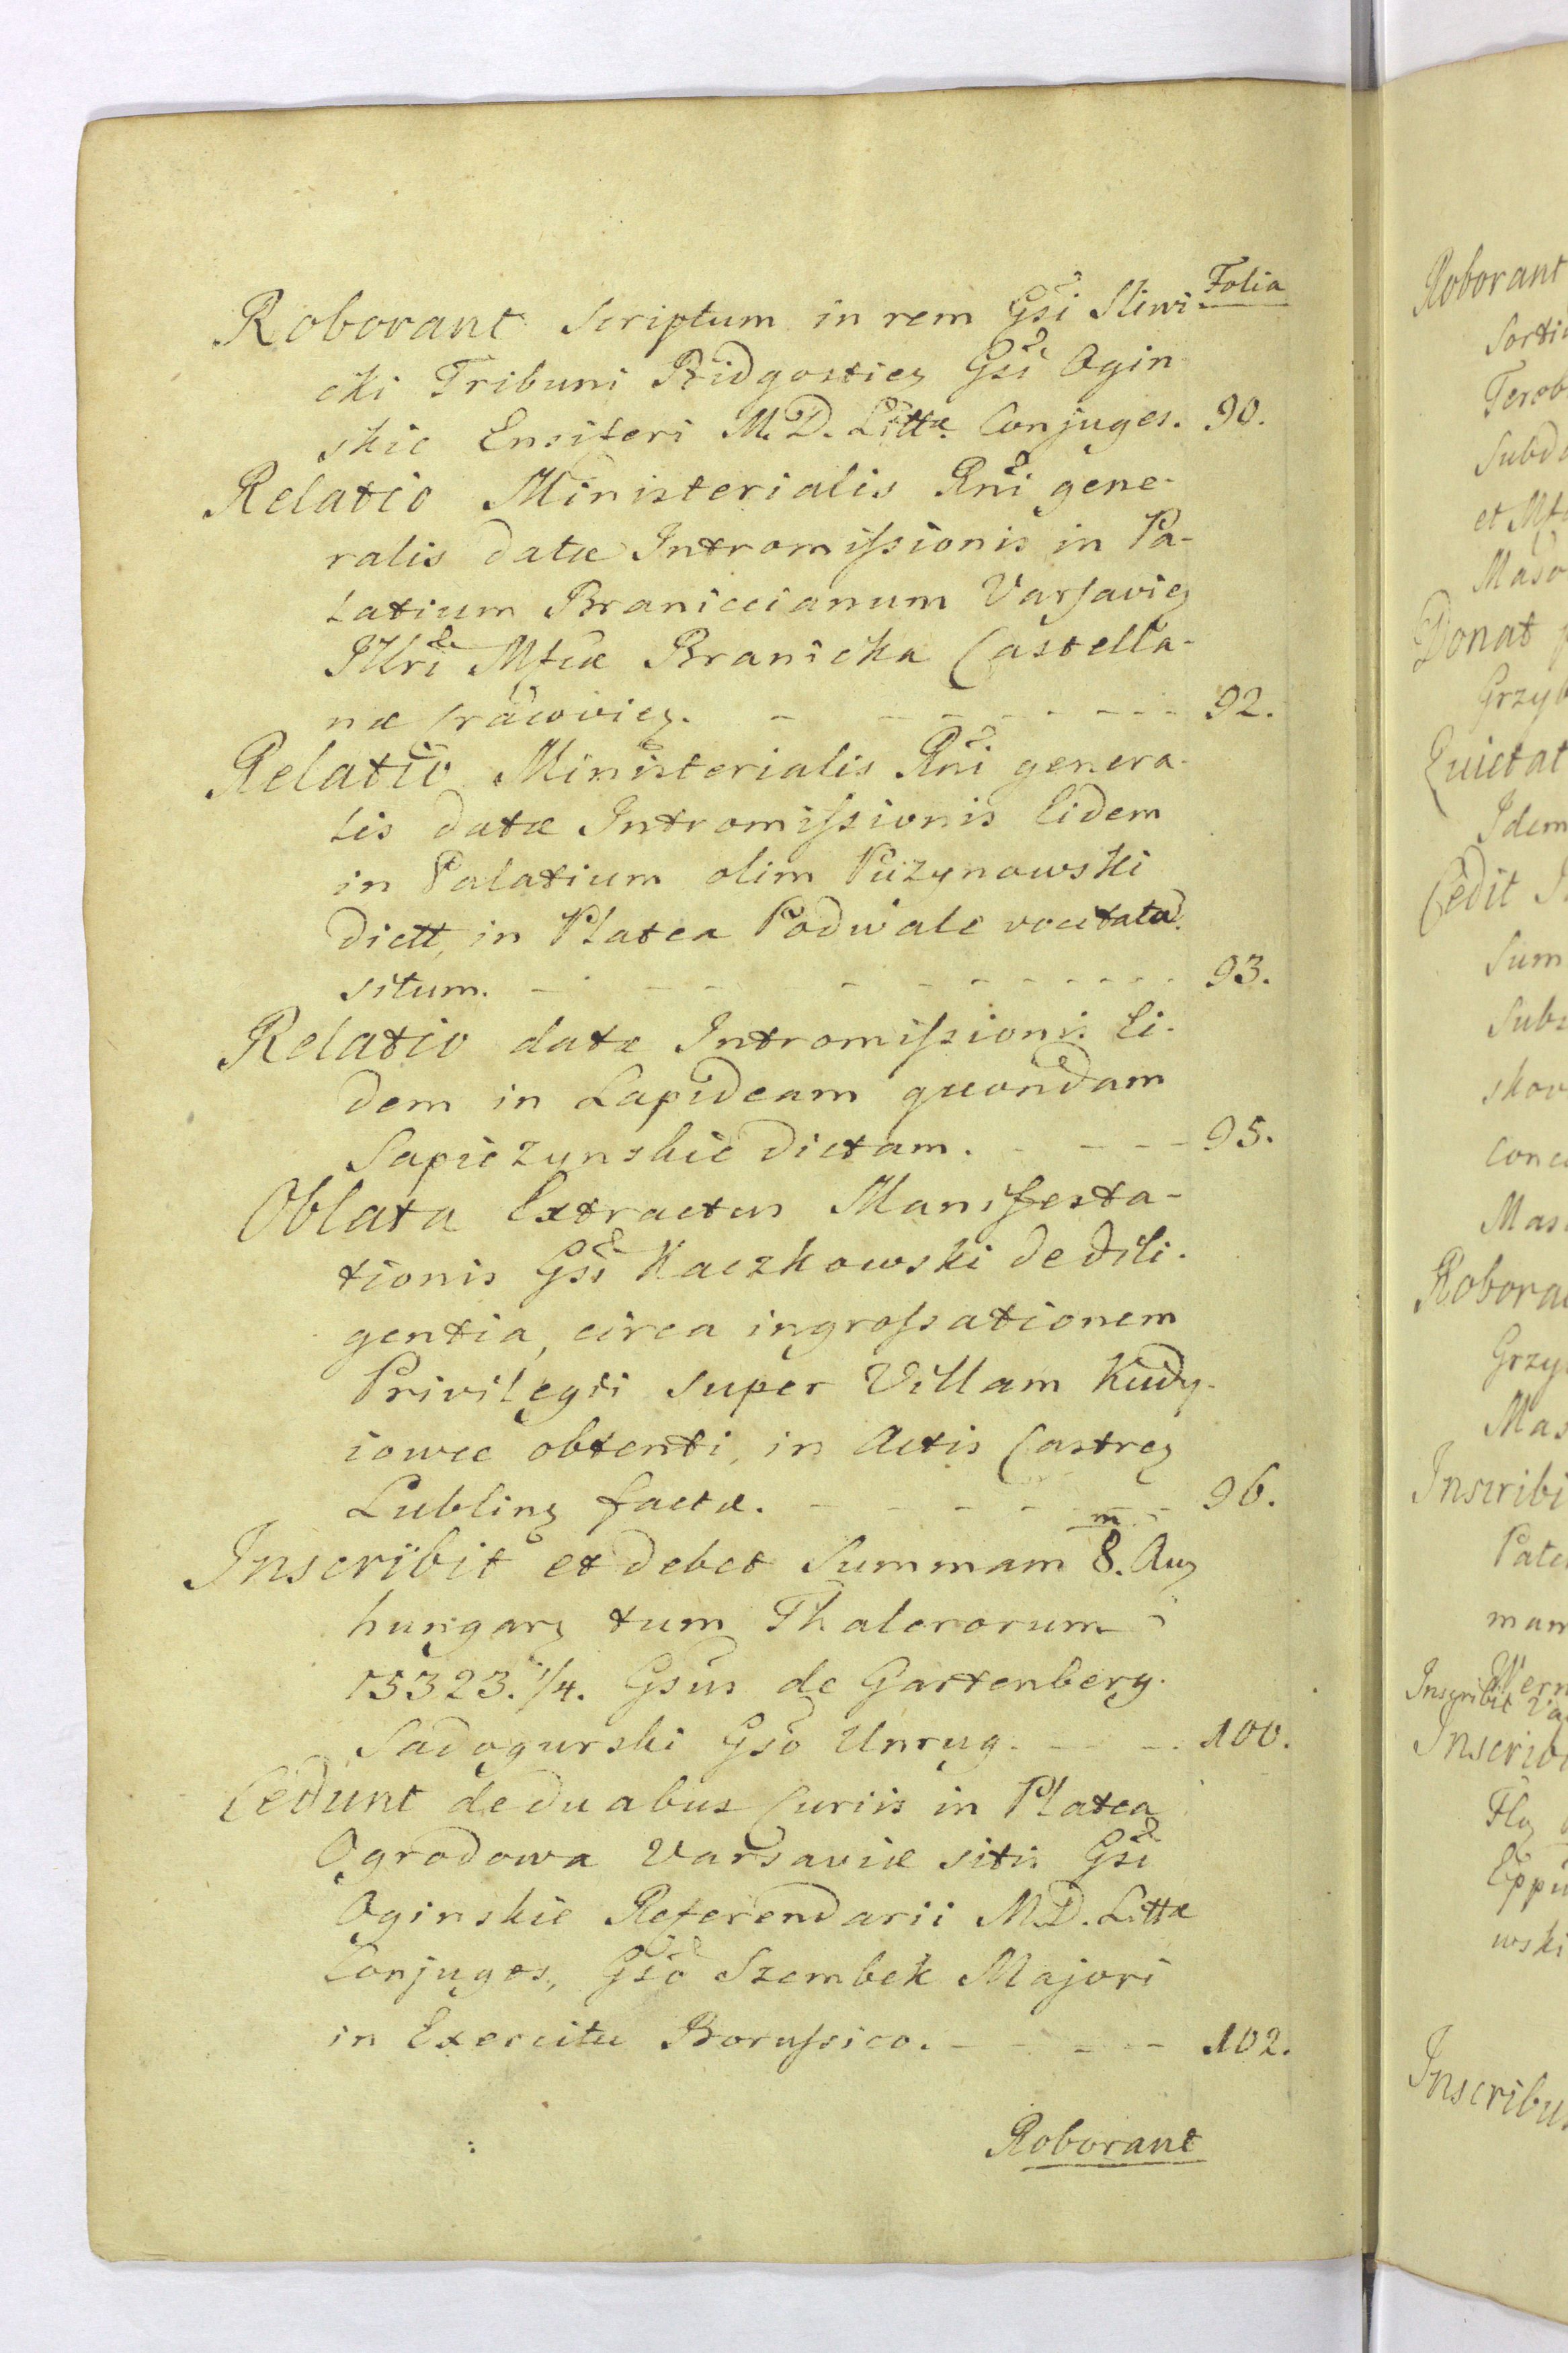 Folia
Roborant Scriptum in rem Gsi Sliwi
cki Tribuni Bidgosties Gsi Ogin
skie Ensiferi M. D. Littæ Conjuges. 90.
Relatio Ministerialis Rni gene-
ralis datæ Intromissionis in Pa-
latium Braniccianum Varsavies
Illri Mfcæ Branicka Castella-
næ Cracovies. 92.
Relatio Ministerialis Rni genera-
lis datæ Intromissionis Eidem
in Palatium olim Puzynowski
dictt, in Platea Podwale vocitata
situm. 93.
Relatio datæ Intromissionis Ei-
dem in Lapideam quondam
Sapiezynskie dictam. 95.
Oblata Extractus Manifesta-
tionis Gsi Kaczkowski de dili-
gentia, circa ingrossationem
Privilegii super Villam Kudy-
iowce obtenti, in Actis Castres
Lublins factæ. 96.
Inscribit et debet Summam 8.m Aus
hungars tum Thalerorum
15323. 1/4. Gsus de Gartenberg
Sadogurski Gso Unrug. 100.
Cedunt de duabus Curiis in Platea
Ogrodowa Varsaviæ sitis Gsi
Oginskie Referendarii M.D. Littæ
Conjuges, Gso Szembek Majori
in Exercitu Borussico. 102.
Roborant
Roborant
Subd
et Mf
Maso
Donat
Grzyb
Quietat
Idem
Cedit
Sum
Subs
skow
conce
Mas
Robora
Grzy
Mas
Inscribi
Pate
mam
Inscribit Va
Inscrib
Eppi
wski
Inscribu